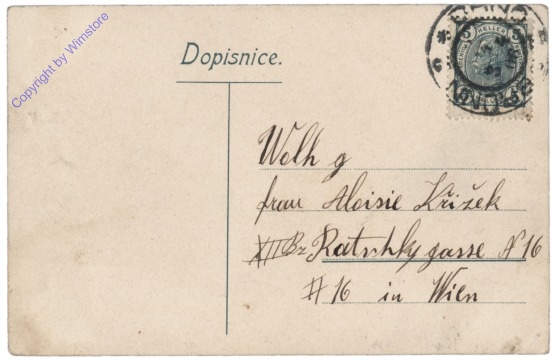 Copyright by Wimstore
Dopisnice.
HELLER
Wolh g
frau Aloisie Křižek
XII Bz Ratschky gasse N 16
# 16 in Wien